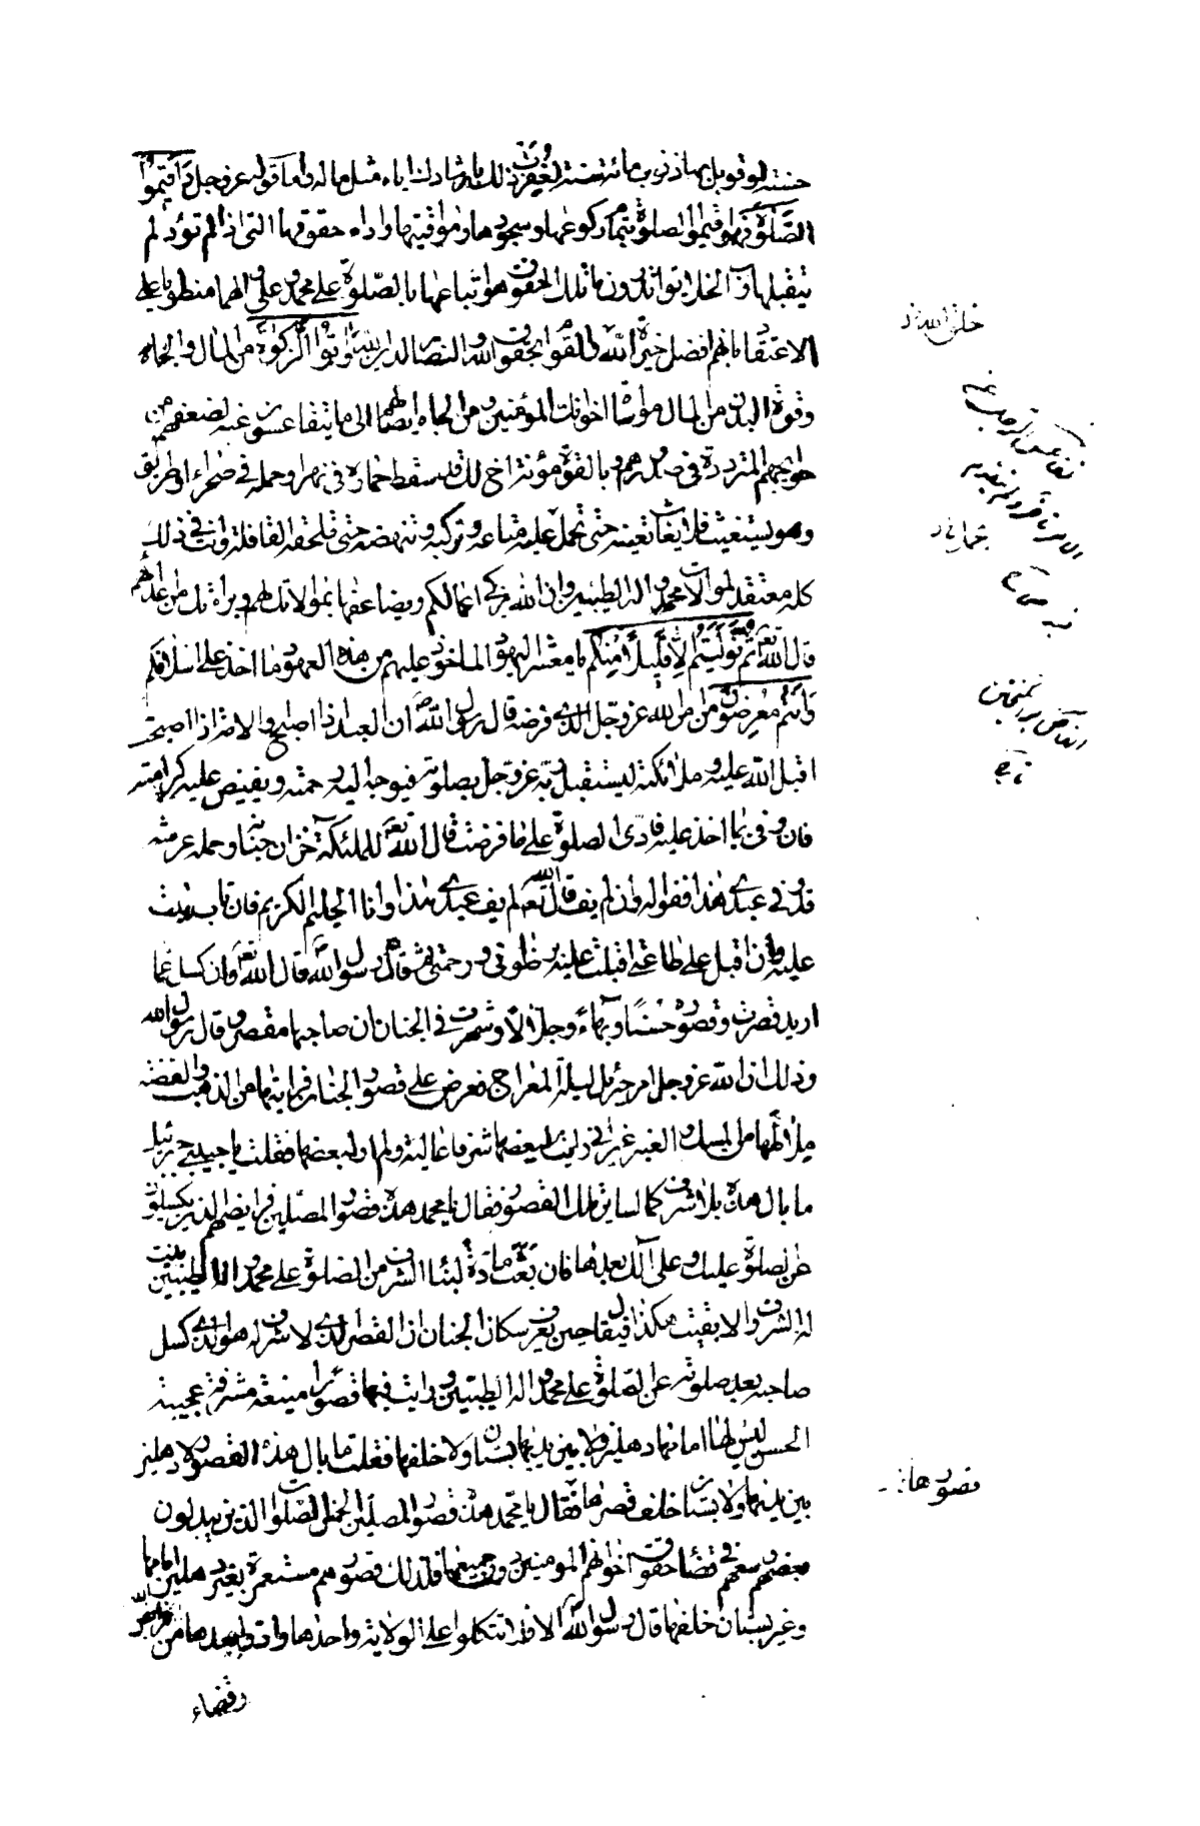 حسنته لو قوبل بها ذنوب مائة سنة لغفرت ذلك بارشادك اياه مثل ماله واما قوله عز وجل واقيموا
الصلوة فهو اقيموا الصلوة بتمام ركوعها وسجودها ومواقيتها واداء حقوقها التي اذا لم تؤد لم
يتقبلها رب الخلايق اتدرون ما تلك الحقوق هو اتباعها بالصلوة على محمد وعلي والهما منطويا على
الاعتقاد بانهم افضل خيرة الله والقوام بحقوق الله والنصار لدين الله واتوا الزكوة من المال والجاه
وقوة البدن من المال مواساة اخوانك المؤمنين ومن الجاه ايصالهم الى ما يتقاعسون عنه لضعفهم من
حوايجهم المترددة في صدورهم وبالقوة مؤنة اخ لك قد سقط حماره في نهر او حمله في صحراء او طريق
وهو يستغيث فلا يغاث تعينه حتى تحمل عليه متاعه وتركبه وتنهضه حتى تلحقه القافلة وانت في ذلك
كله معتقد لموالات محمد واله الطيبين وان الله يزكي اعمالكم ويضاعفها بموالاتك لهم وبراءتك من اعدائهم
قال الله تع ثم توليتم الا قليلا منكم يا معشر اليهود الماخوذ عليهم من هذه العهود ما اخذ على اسلافكم
وانتم معرضون من امر الله عز وجل الذي فرضه قال رسول الله ص ان العبد اذا اصبح والامة اذا اصبحت
اقبل الله عليه وملائكته ليستقبل ربه عز وجل بصلوته فيوجه اليه رحمته ويفيض عليه كرامته
فان وفى بما اخذ عليه فادى الصلوة على ما فرضت قال الله تع للملئكة خزان جنانه وحملة عرشه
قد وفى عبدي هذا ففوا له وان لم يف قال الله تع لم يف عبدي هذا وانا الحليم الكريم فان تاب تبت
عليه وان اقبل على طاعتي اقبلت عليه برضواني ورحمتي ثم قال رسول الله ص قال الله تع وان كسل عما
اريد قصرت قصوره حسنا وبهاء وجلالا وشهرت في الجنان ان صاحبها مقصر وقال رسول الله
وذلك ان الله عز وجل امر جبرئيل ليلة المعراج فعرض على قصور الجنان فرايتها من الذهب والفضة
ملاطها من المسك والعنبر غير اني رايت لبعضها شرفا عالية ولم ار لبعضها فقلت يا حبيبي جبرئيل
ما بال هذه بلا شرف كما لساير تلك القصور فقال يا محمد هذه قصور المصلين فرايضهم الذين يكسلون
عن الصلوة عليك وعلى آلك بعدها فان بعث مادة لبناء الشرف من الصلوة على محمد واله الطيبين بنيت
له الشرف والا بقيت هكذا فيقال حين يعرف سكان الجنان ان القصر الذي لا شرف له هو الذي كسل
صاحبه بعد صلوته عن الصلوة على محمد واله الطيبين ورايت فيها قصورا منيعة مشرفة عجيبة
الحسن ليس لها امامها دهليز ولا بين يديها بستان ولا خلفها فقلت ما بال هذه القصور لا دهليز
بين يديها ولا بستان خلف قصرها فقال يا محمد هذه قصور المصلين الخمس الصلوات الذين يبذلون
بعض وسعهم في قضاء حقوق اخوانهم المومنين دون جميعها فلذلك قصورهم مستعمرة بغير دهليز امامها
وغير بستان خلفها قال رسول الله الا فلا تتكلوا على الولاية وحدها وادوا ما بعدها من فرايض الله
وقضاء
خلق الله
قصورها